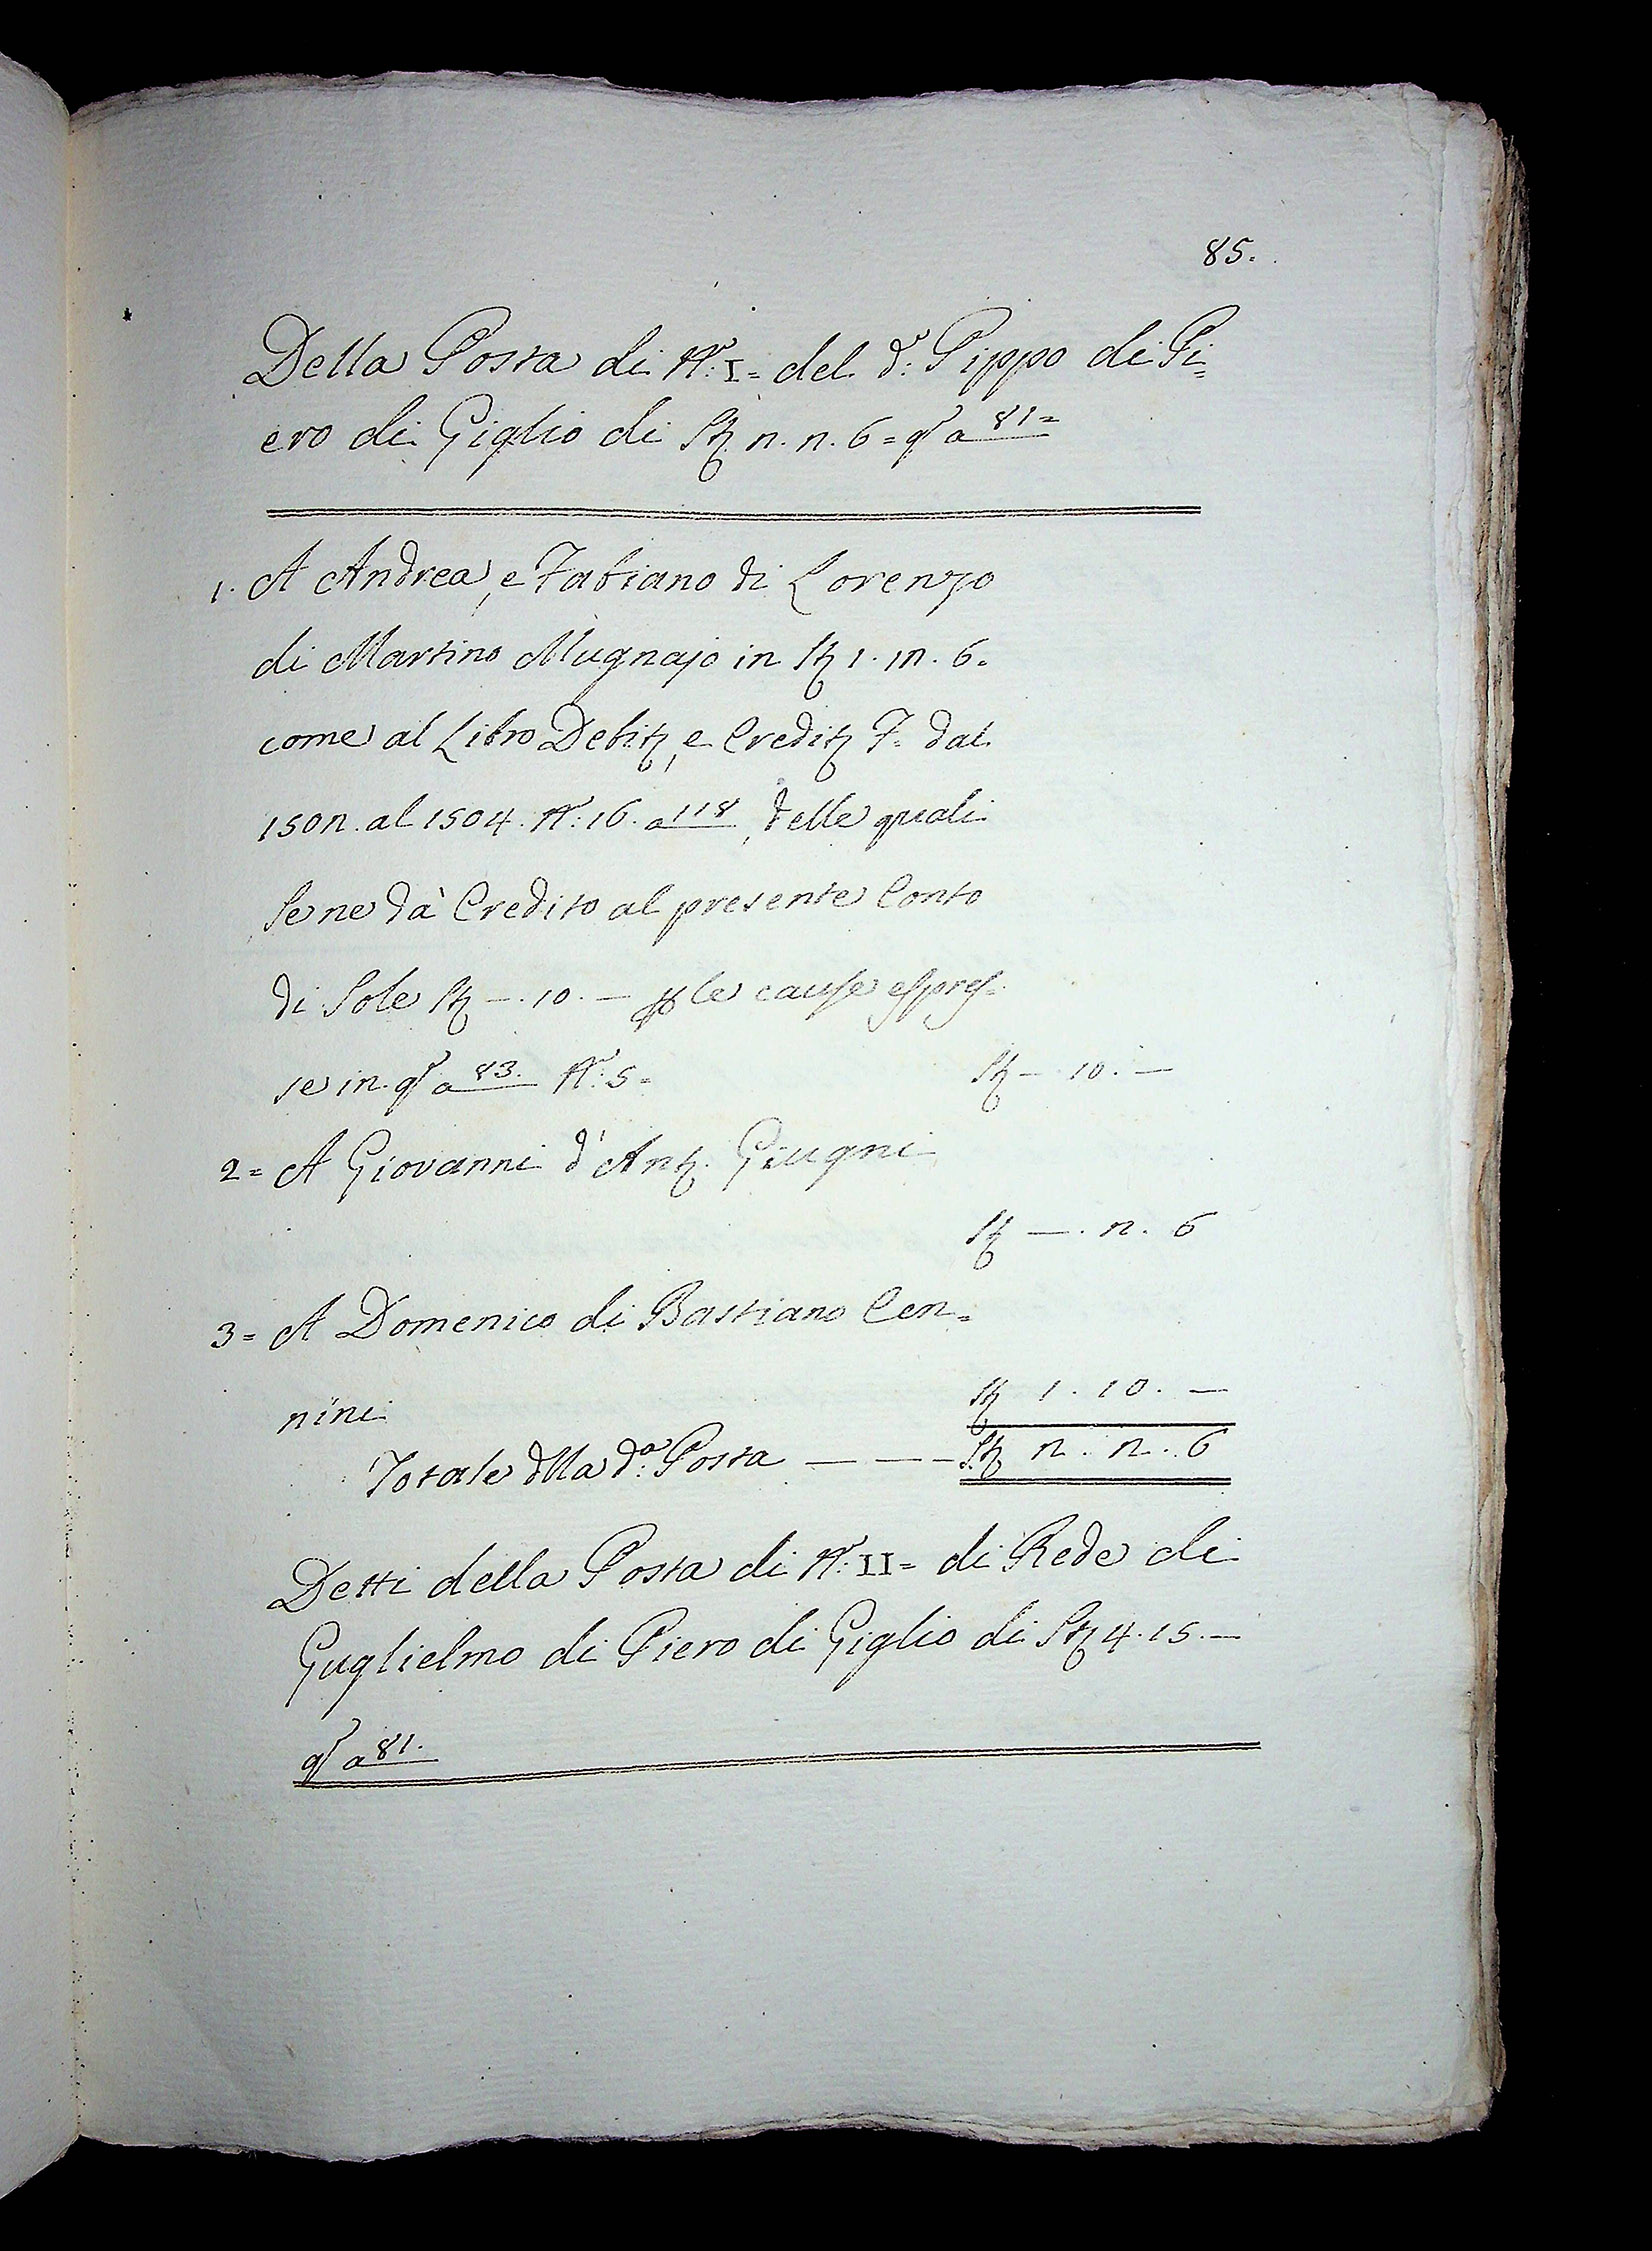 85.
Della Posta di N.º I = del d.º Pippo di Pi=
ero di Giglio di St. n. n. 6 = q.º a 81=
1. A Andrea, e Fabiano di Lorenzo
di Martino Mugnajo in St. 1. 1n. 6.
come al Libro Debit., e Credit. F. dal
150n. al 1504. N.º 16. a 118, delle quali
se ne dà Credito al presente Conto
di sole St. —. 10. — p le cause espres=
se in q.º a 83. N.º 5=
St. —. 10. —
2= A Giovanni d'Ant. Giugni
St. —. n. 6
3= A Domenico di Bastiano Cen=
nini
St. 1. 10. —
Totale dlla d.ª Posta — — — St. n. n. 6
Detti della Posta di N.º II= di Rede di
Guglielmo di Piero di Giglio di St. 4. 15. —
q.º a 81.